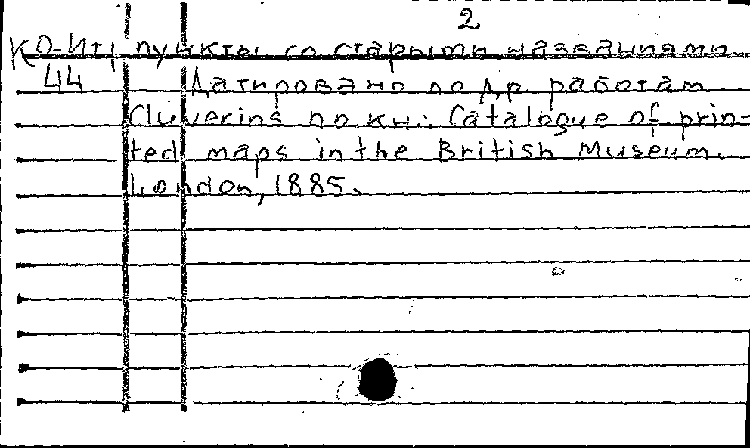 2
КО-Ит/ пункты со старыми названиями.
44 Датировано по др. работам
Cluverius по кн.: Catalogue of prin-
ted maps in the British Museum.
London, 1885.